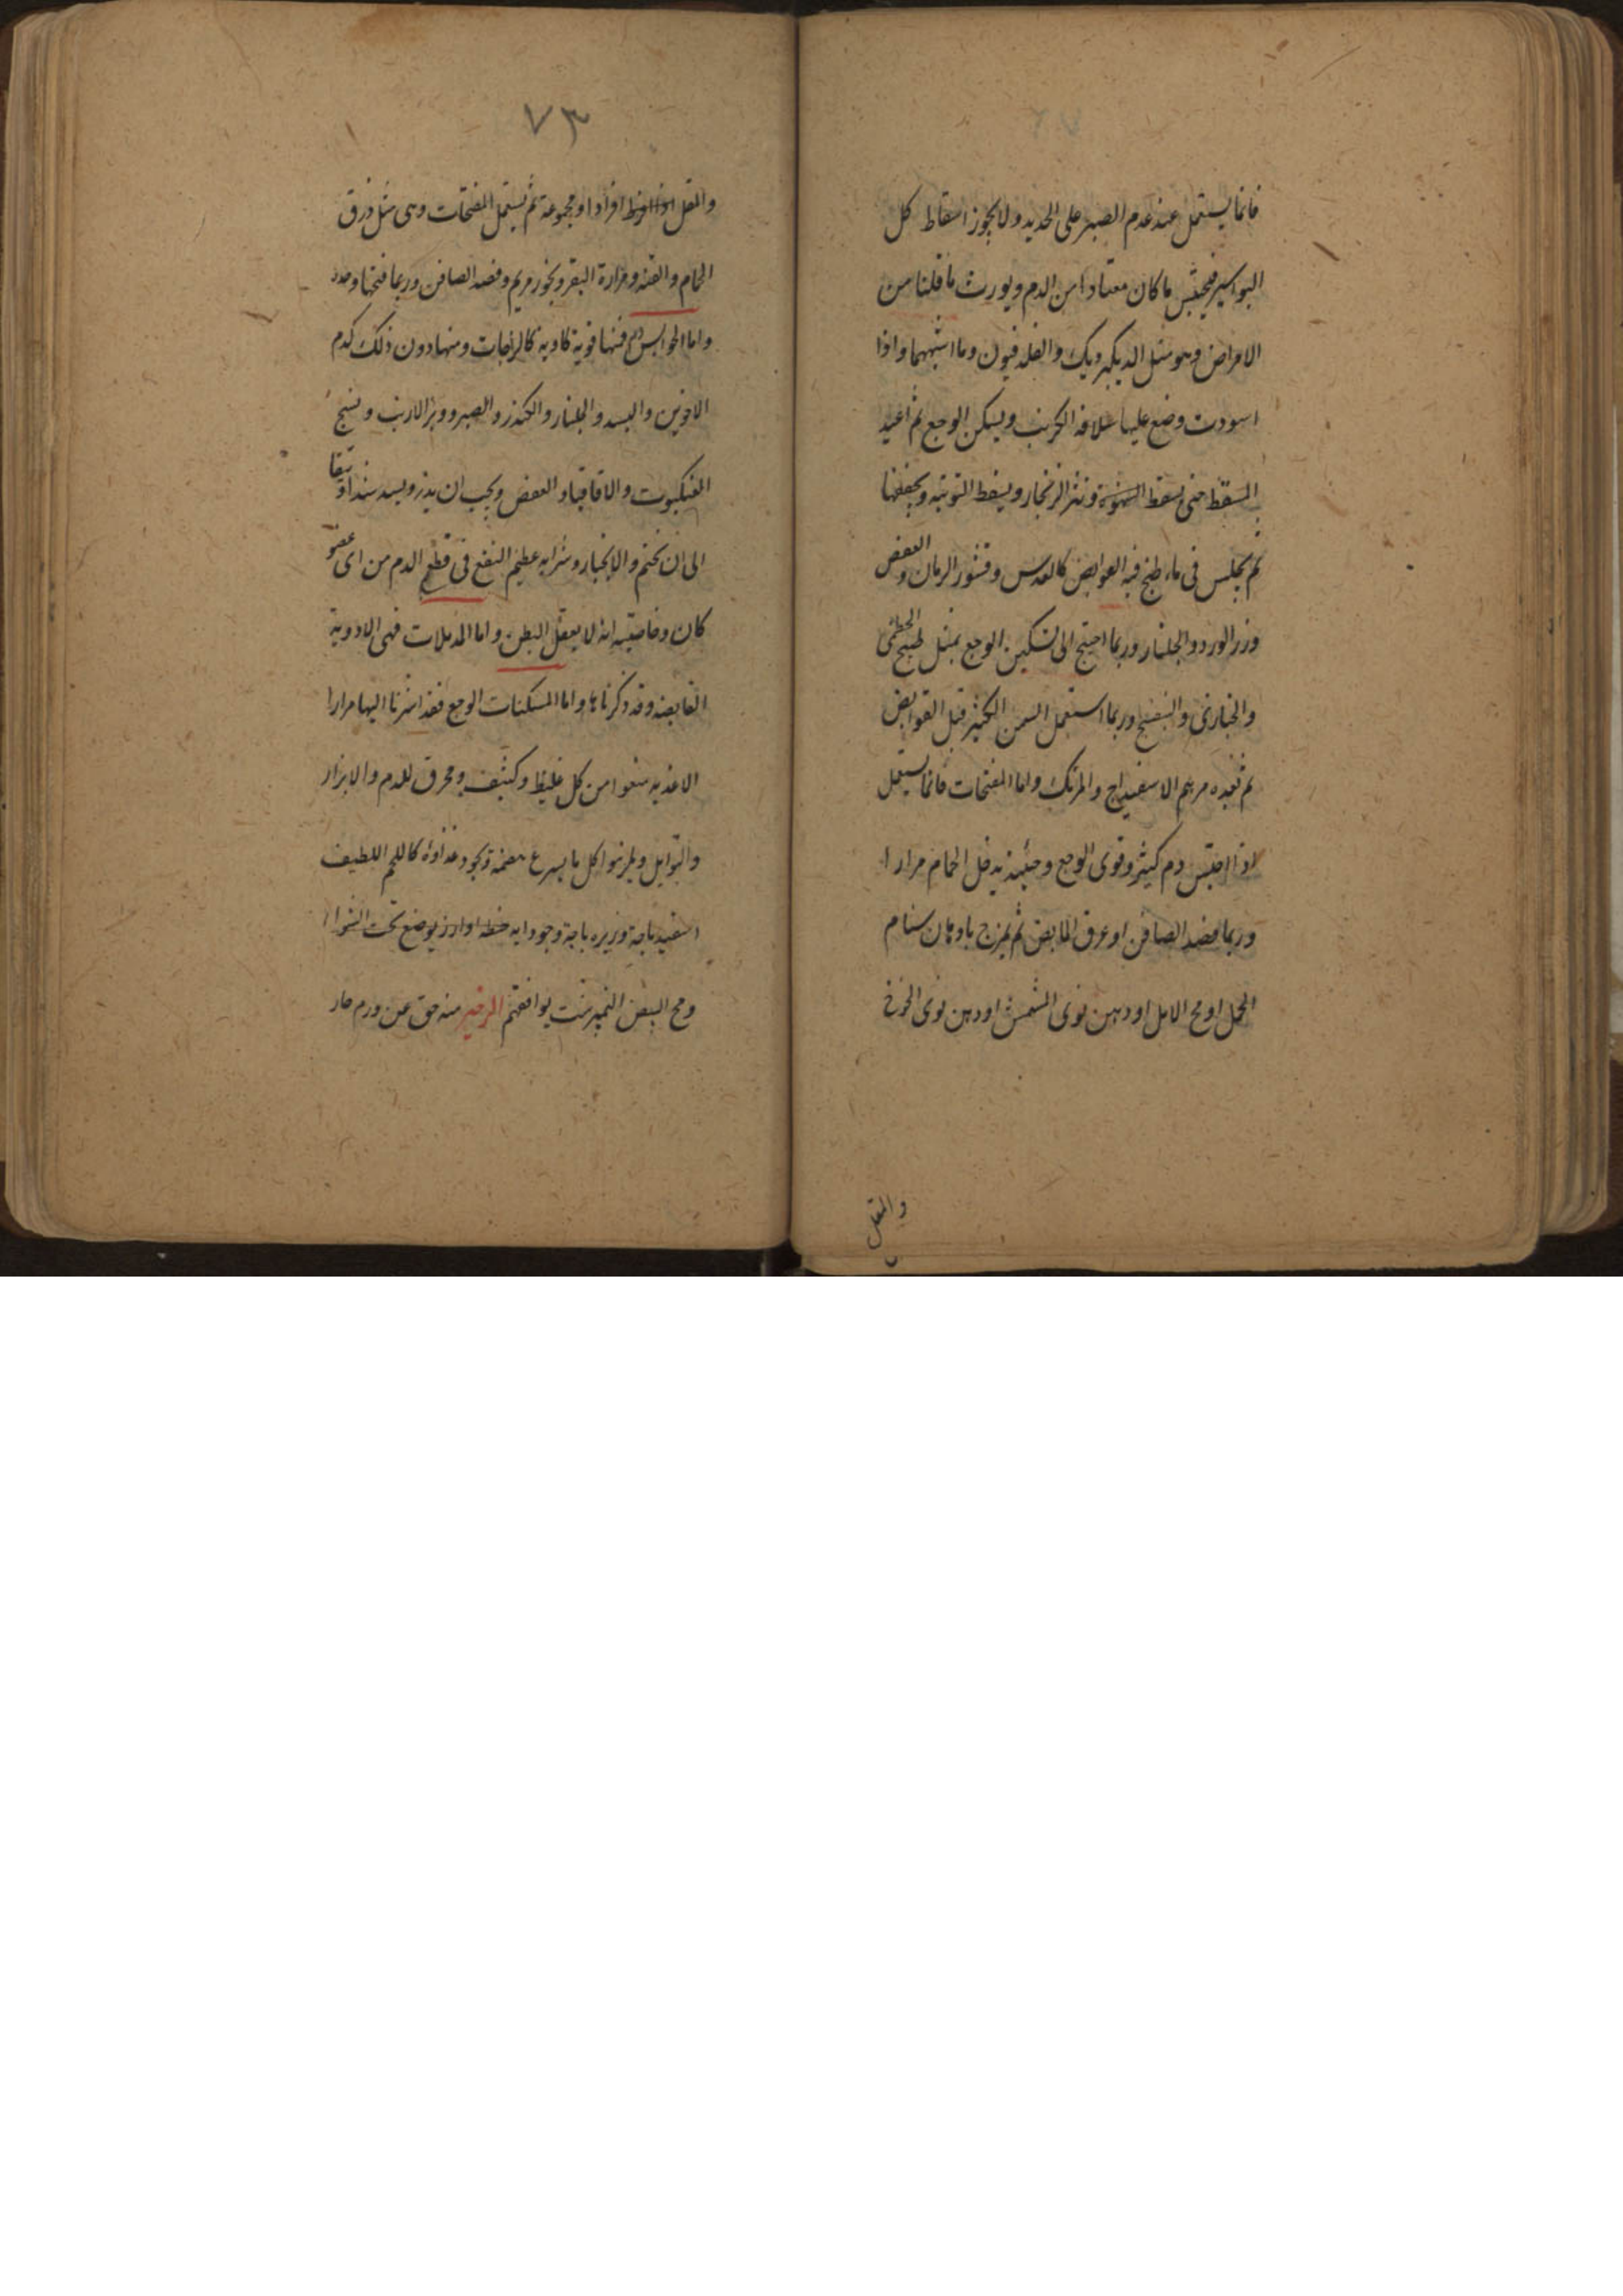 فانما يستعمل عند عدم الصبر على الحديد ولا يجوز اسقاط كل
البواسير فيحتبس ما كان معتادا من الدم ويورث ما قلنا من
الامراض وهو مثل الديكبرديك والفلدفيون وما اشبههما واذا
اسودت وضع عليها سلاقة الكرنب ويسكن الوجع ثم اعيد
المسقط حتى يسقط ونثر الزنجار ويسقط التوتيه ويجففها
ثم يجلس فى ماء طبخ فيه القوابض كالعدس وقشور الرمان والعفص
وزر الورد والجلنار وربما احتيج الى تسكين الوجع بمثل طبيخ الخطمى
والخبازى والبنفسج وربما استعمل السمن الكثير قبل القوابض
ثم بعده مرهم الاسفيداج والمرتك واما المفتحات فانما يستعمل
اذا احتبس دم كثير وقوى الوجع وحينئذ يدخل الحمام مرارا
وربما فصد الصافن او عرق المابض ثم يمزج بادهان سنام
الجمل او مخ الايل او دهن نوى المشمش او دهن نوى الخوخ
والمقل
٧٣
والمقل افرادا او مجموعة ثم يستعمل المفتحات وهى مثل ذرق
الحمام والقنه ومرارة البقر وبخور مريم وفصد الصافن وربما فتحها وحده
واما الحوابس دم فمنها قوية كاوية كالزاجات ومنها دون ذلك كدم
الاخوين والبسد والجلنار والكندر والصبر ووبر الارنب ونسج
العنكبوت والاقاقيا والعفص ويجب ان يذر ويشد شدا وثيقا
الى ان يختم والانجبار وشرابه عظيم النفع فى قطع الدم من اى عضو
كان وخاصيته انه لا يعقل البطن واما المدملات فهى الادوية
القابضه وقد ذكرناها واما المسكنات الوجع فقد اشرنا اليها مرارا
الاغذيه منعوا من كل غليظ وكثيف ومحرق للدم والابزار
والتوابل ويلزموا كل ما يسرع هضمه ويجود غذاؤه كاللحم اللطيف
اسفيدباجة وزيره باجة وجودابه حنطه او ارز يوضع تحت الشواء
ومح البيض النيمبرشت يوافقهم الزحير منه حق عن ورم حار